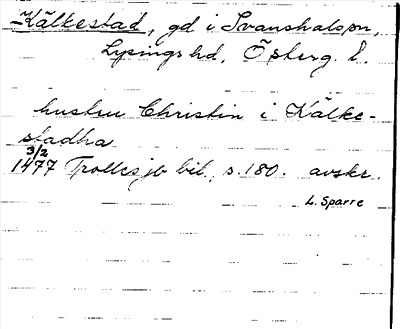 Kälkestad, gd i Svanshalspn,
Lysings hd, Österg. l.
hustru Christin i Kälke-
stadha
3/2
1477 Trolles jb bil., s. 180. avskr.
L. Sparre